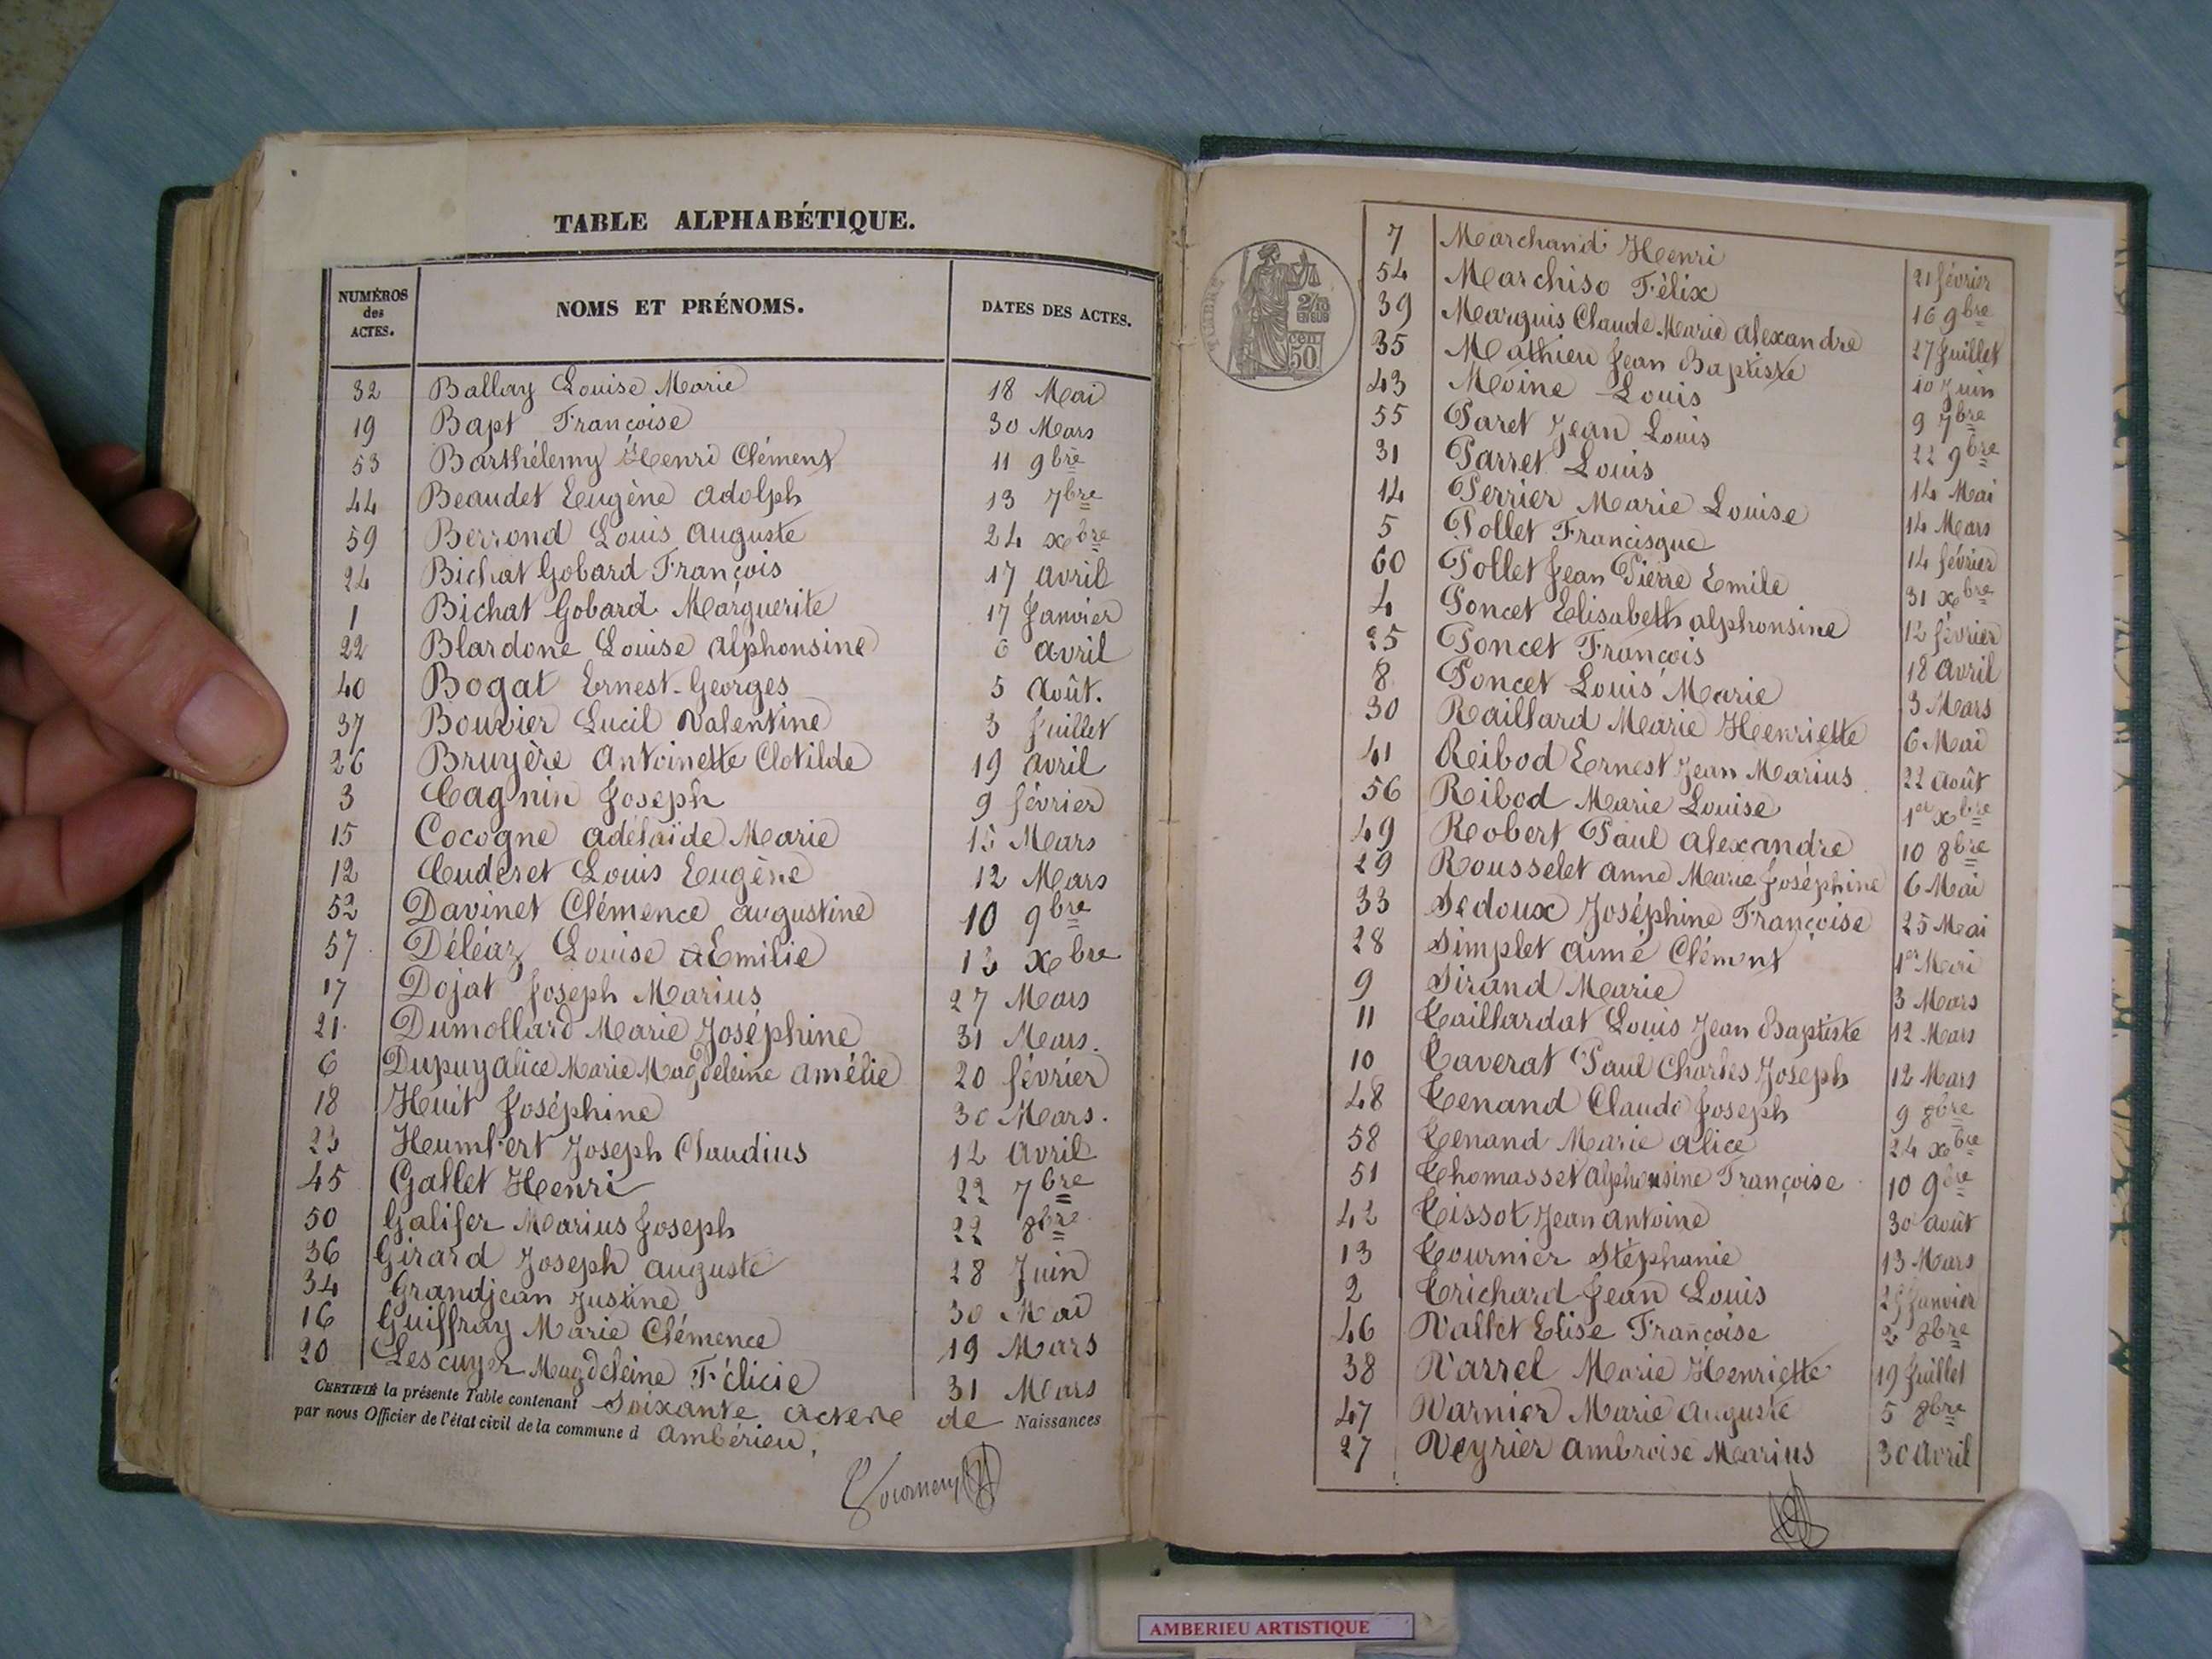 TABLE ALPHABÉTIQUE.
NUMÉROS des ACTES. NOMS ET PRÉNOMS. DATES DES ACTES.
32 Ballay Louise Marie 18 Mai
19 Bapt Françoise 30 Mars
53 Barthélemy Henri Clément 11 9bre
44 Beaudet Eugène Adolph 13 7bre
59 Berrond Louis Auguste 24 xbre
24 Bichat Gobard François 17 Avril
1 Bichat Gobard Marguerite 17 Janvier
22 Blardone Louise Alphonsine 6 Avril
40 Bogat Ernest-Georges 5 Août.
37 Bouvier Lucil Valentine 3 Juillet
26 Bruyère Antoinette Clotilde 19 Avril
3 Cagnin Joseph 9 février
15 Cocogne Adélaïde Marie 15 Mars
12 Cuderet Louis Eugène 12 Mars
52 Davinet Clémence Augustine 10 9bre
57 Déléaz Louise Emilie 13 xbre
17 Dojat Joseph Marius 27 Mars
21 Dumollard Marie Joséphine 31 Mars.
6 Dupuy Alice Marie Magdeleine Amélie 20 février
18 Huit Joséphine 30 Mars.
23 Humbert Joseph Claudius 12 Avril
45 Gallet Henri 22 7bre
50 Galifer Marius Joseph 22 8bre
36 Girard Joseph Auguste 28 Juin
34 Grandjean Justine 30 Mai
16 Guiffray Marie Clémence 19 Mars
20 Lescuyer Magdeleine Félicie 31 Mars
CERTIFIÉ la présente Table contenant Soixante actes de Naissances
par nous Officier de l'état civil de la commune d Ambérieu,
TIMBRE
2/10 EN SUS
50 cen
7 Marchand Henri 21 février
54 Marchiso Félix 16 9bre
39 Marquis Claude Marie Alexandre 27 Juillet
35 Mathieu Jean Baptiste 10 Juin
43 Moine Louis 9 7bre
55 Paret Jean Louis 22 9bre
31 Parret Louis 14 Mai
14 Perrier Marie Louise 14 Mars
5 Pollet Francisque 14 février
60 Pollet Jean Pierre Emile 31 xbre
4 Poncet Elisabeth Alphonsine 12 février
25 Poncet François 18 Avril
8 Poncet Louis Marie 3 Mars
30 Raillard Marie Henriette 6 Mai
41 Reibod Ernest Jean Marius 22 Août
56 Ribod Marie Louise 1er xbre
49 Robert Paul Alexandre 10 8bre
29 Rousselet Anne Marie Joséphine 6 Mai
33 Sedoux Joséphine Françoise 25 Mai
28 Simplet Aimé Clément 1er Mai
9 Sirand Marie 3 Mars
11 Taillardat Louis Jean Baptiste 12 Mars
10 Taverat Paul Charles Joseph 12 Mars
48 Tenand Claude Joseph 9 8bre
58 Tenand Marie Alice 24 xbre
51 Thomasset Alphonsine Françoise 10 9bre
42 Tissot Jean Antoine 30 Août
13 Tournier Stéphanie 13 Mars
2 Trichard Jean Louis Janvier
46 Vallet Elise Françoise 2 8bre
38 Varrel Marie Henriette 19 Juillet
47 Varnier Marie Auguste 5 8bre
27 Veyrier Ambroise Marius 30 Avril
AMBERIEU ARTISTIQUE